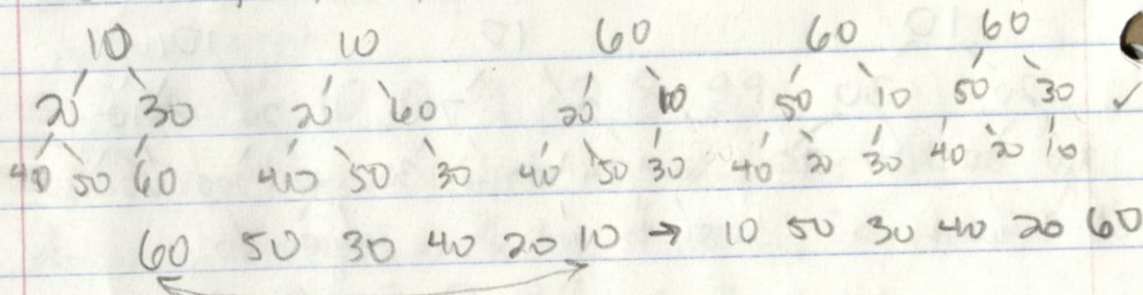 10 10 60 60 60
20 30 20 60 20 10 50 10 50 30 ✓
40 50 60 40 50 30 40 50 30 40 20 30 40 20 10
60 50 30 40 20 10 → 10 50 30 40 20 60